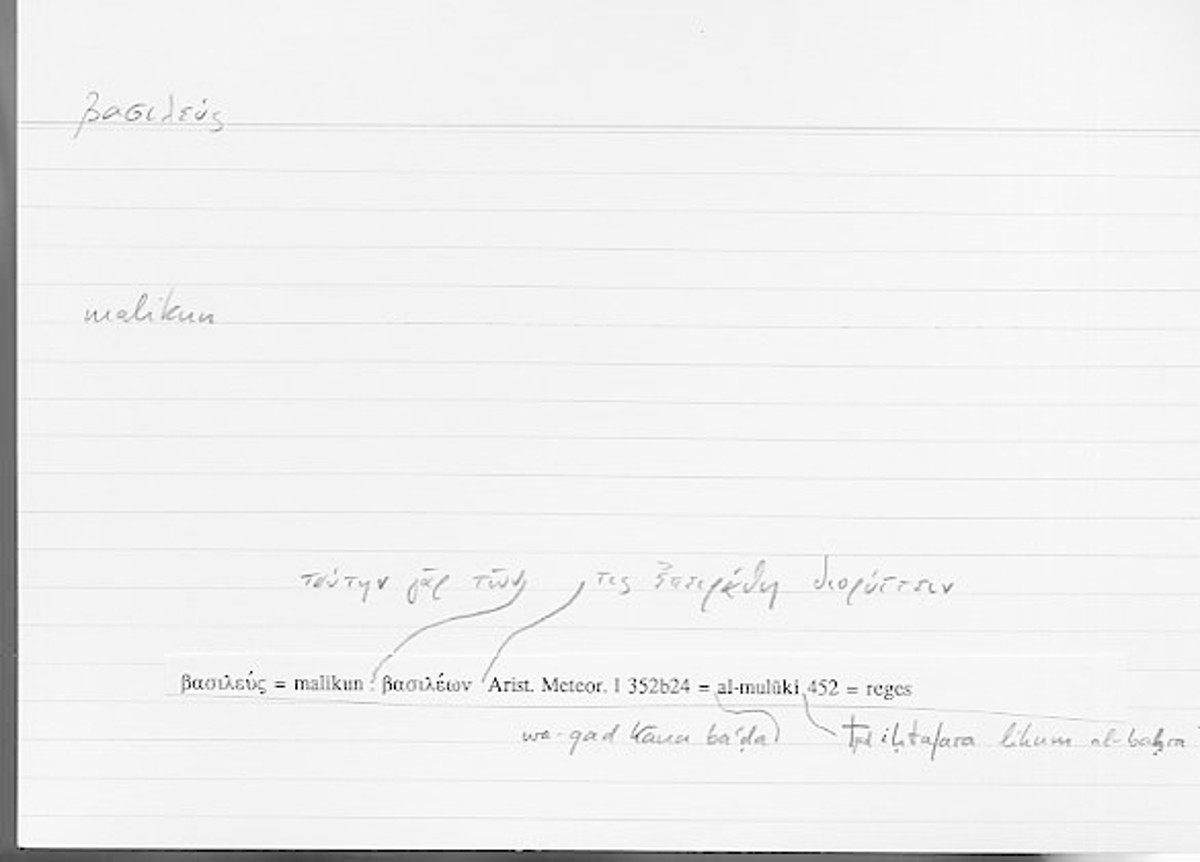 βασιλεύς
malikun
ταύτην γὰρ τῶν τις ἐπειράθη διορύττειν
βασιλεύς = malikun : βασιλέων Arist. Meteor. I 352b24 = al-mulūki 452 = reges
wa-qad kāna baʿḍa iḥtafara al-baḥra